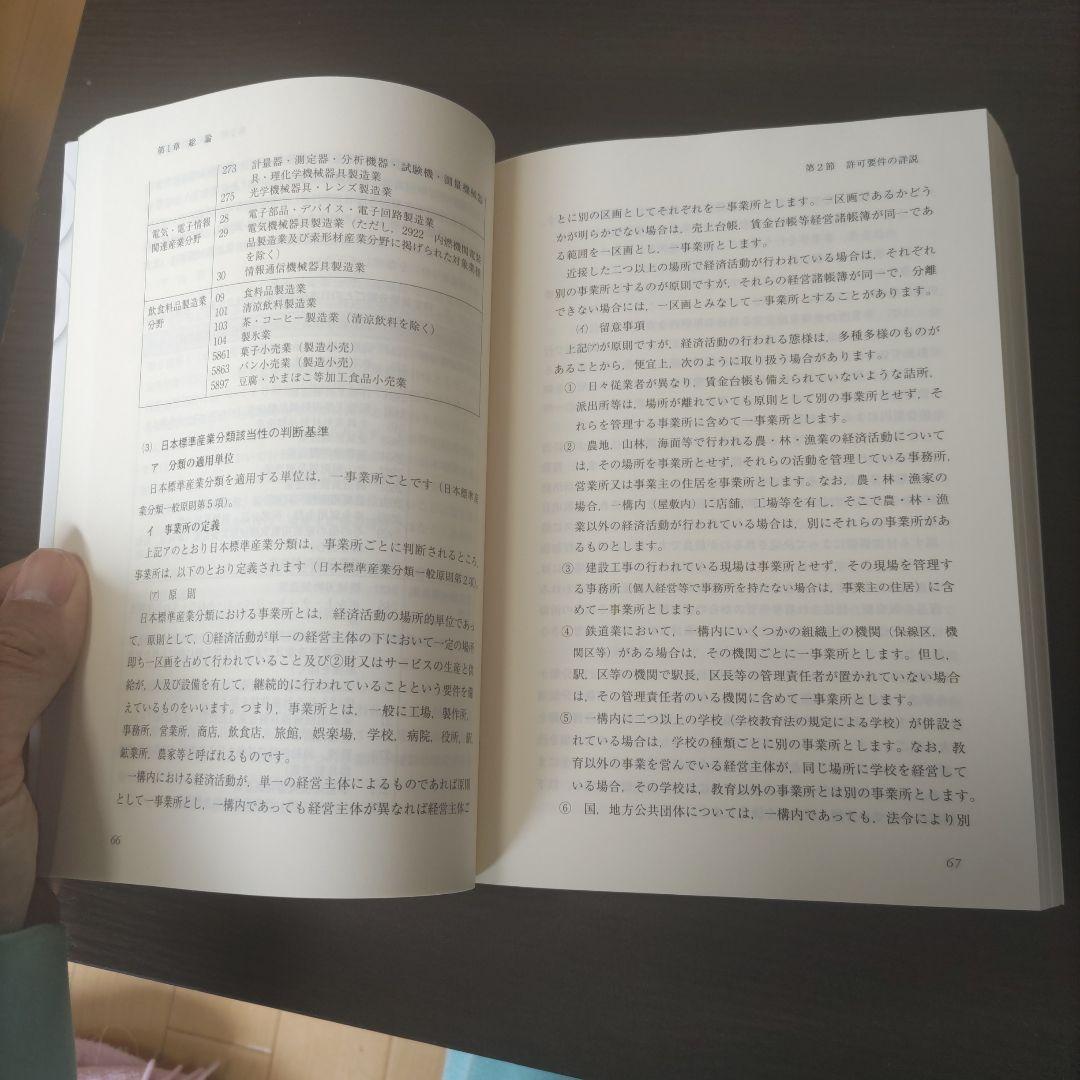 第1章 総 論
273 計量器・測定器・分析機器・試験機・測量機械器
具・理化学機械器具製造業
275 光学機械器具・レンズ製造業
電気・電子情報 28 電子部品・デバイス・電子回路製造業
関連産業分野 29 電気機械器具製造業（ただし，2922 内燃機関電装
品製造業及び素形材産業分野に掲げられた対象業種
を除く）
30 情報通信機械器具製造業
飲食料品製造業 09 食料品製造業
分野 101 清涼飲料製造業
103 茶・コーヒー製造業（清涼飲料を除く）
104 製氷業
5861 菓子小売業（製造小売）
5863 パン小売業（製造小売）
5897 豆腐・かまぼこ等加工食品小売業
⑶ 日本標準産業分類該当性の判断基準
ア 分類の適用単位
日本標準産業分類を適用する単位は，一事業所ごとです（日本標準産
業分類一般原則第5項）。
イ 事業所の定義
上記アのとおり日本標準産業分類は，事業所ごとに判断されるところ，
事業所は，以下のとおり定義されます（日本標準産業分類一般原則第2項）。
㋐ 原 則
日本標準産業分類における事業所とは，経済活動の場所的単位であっ
て，原則として，①経済活動が単一の経営主体の下において一定の場所
即ち一区画を占めて行われていること及び②財又はサービスの生産と供
給が，人及び設備を有して，継続的に行われていることという要件を備
えているものをいいます。つまり，事業所とは，一般に工場，製作所，
事務所，営業所，商店，飲食店，旅館，娯楽場，学校，病院，役所，駅，
鉱業所，農家等と呼ばれるものです。
一構内における経済活動が，単一の経営主体によるものであれば原則
として一事業所とし，一構内であっても経営主体が異なれば経営主体ご
66
第2節 許可要件の詳説
とに別の区画としてそれぞれを一事業所とします。一区画であるかどう
かが明らかでない場合は，売上台帳，賃金台帳等経営諸帳簿が同一であ
る範囲を一区画とし，一事業所とします。
近接した二つ以上の場所で経済活動が行われている場合は，それぞれ
別の事業所とするのが原則ですが，それらの経営諸帳簿が同一で，分離
できない場合には，一区画とみなして一事業所とすることがあります。
㋑ 留意事項
上記㋐が原則ですが，経済活動の行われる態様は，多種多様のものが
あることから，便宜上，次のように取り扱う場合があります。
① 日々従業者が異なり，賃金台帳も備えられていないような詰所，
派出所等は，場所が離れていても原則として別の事業所とせず，そ
れらを管理する事業所に含めて一事業所とします。
② 農地，山林，海面等で行われる農・林・漁業の経済活動について
は，その場所を事業所とせず，それらの活動を管理している事務所，
営業所又は事業主の住居を事業所とします。なお，農・林・漁家の
場合，一構内（屋敷内）に店舗，工場等を有し，そこで農・林・漁
業以外の経済活動が行われている場合は，別にそれらの事業所があ
るものとします。
③ 建設工事の行われている現場は事業所とせず，その現場を管理す
る事務所（個人経営等で事務所を持たない場合は，事業主の住居）に含
めて一事業所とします。
④ 鉄道業において，一構内にいくつかの組織上の機関（保線区，機
関区等）がある場合は，その機関ごとに一事業所とします。但し，
駅，区等の機関で駅長，区長等の管理責任者が置かれていない場合
は，その管理責任者のいる機関に含めて一事業所とします。
⑤ 一構内に二つ以上の学校（学校教育法の規定による学校）が併設さ
れている場合は，学校の種類ごとに別の事業所とします。なお，教
育以外の事業を営んでいる経営主体が，同じ場所に学校を経営して
いる場合，その学校は，教育以外の事業所とは別の事業所とします。
⑥ 国，地方公共団体については，一構内であっても，法令により別
67